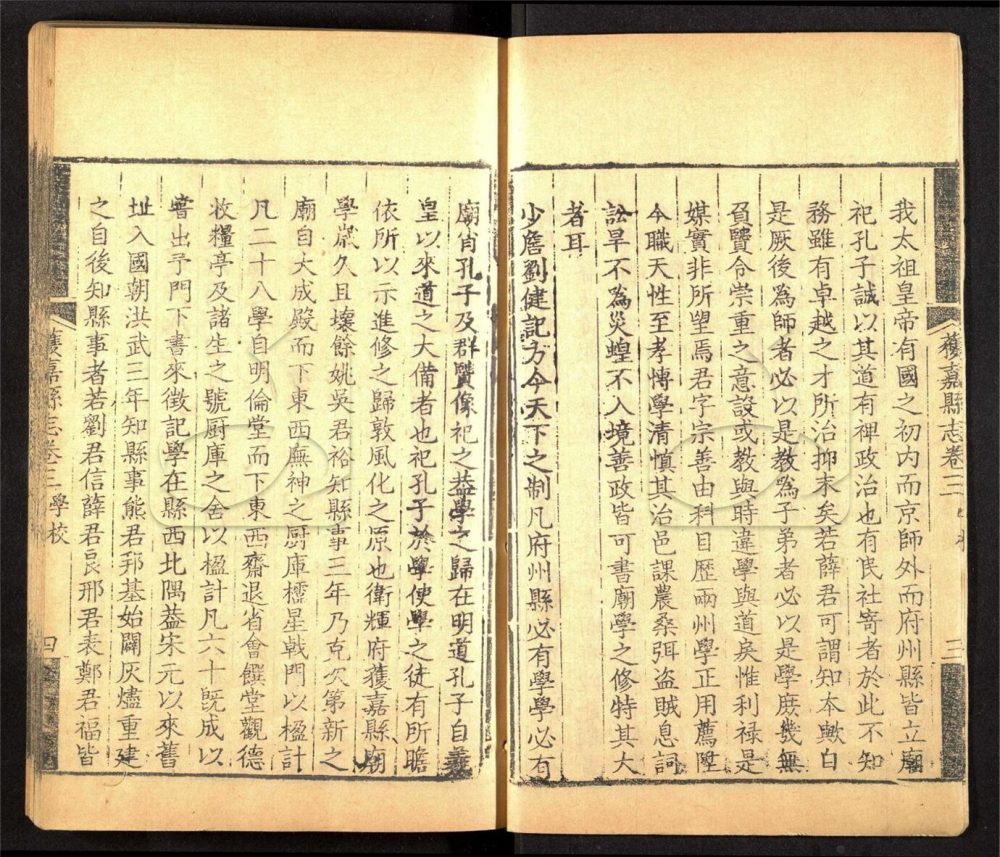 獲嘉縣志卷三
三
我太祖皇帝有國之初內而京師外而府州縣皆立廟
祀孔子誠以其道有裨政治也有民社寄者於此不知
務雖有卓越之才所治抑末矣若薛君可謂知本歟自
是厥後為師者必以是教為子弟者必以是學庶幾無
負贒令崇重之意設或教與時違學與道戾惟利祿是
媒實非所望焉君字宗善由科目歷兩州學正用薦陞
今職天性至孝博學清慎其治邑課農桑弭盜賊息詞
訟旱不為災蝗不入境善政皆可書廟學之修特其大
者耳
少詹劉健記方今天下之制凡府州縣必有學學必有
廟肖孔子及群贒像祀之葢學之歸在明道孔子自羲
皇以來道之大備者也祀孔子於學使學之徒有所瞻
依所以示進修之歸敦風化之原也衛輝府獲嘉縣廟
學歲久且壞餘姚吳君裕知縣事三年乃克次第新之
廟自大成殿而下東西廡神之厨庫櫺星戟門以楹計
凡二十八學自明倫堂而下東西齋退省會饌堂觀德
收糧亭及諸生之號厨庫之舍以楹計凡六十既成以
嘗出予門下書來徵記學在縣西北隅葢宋元以來舊
址入國朝洪武三年知縣事熊君邦基始闢灰燼重建
之自後知縣事者若劉君信薛君良邢君表鄭君福皆
獲嘉縣志卷三 學校
四